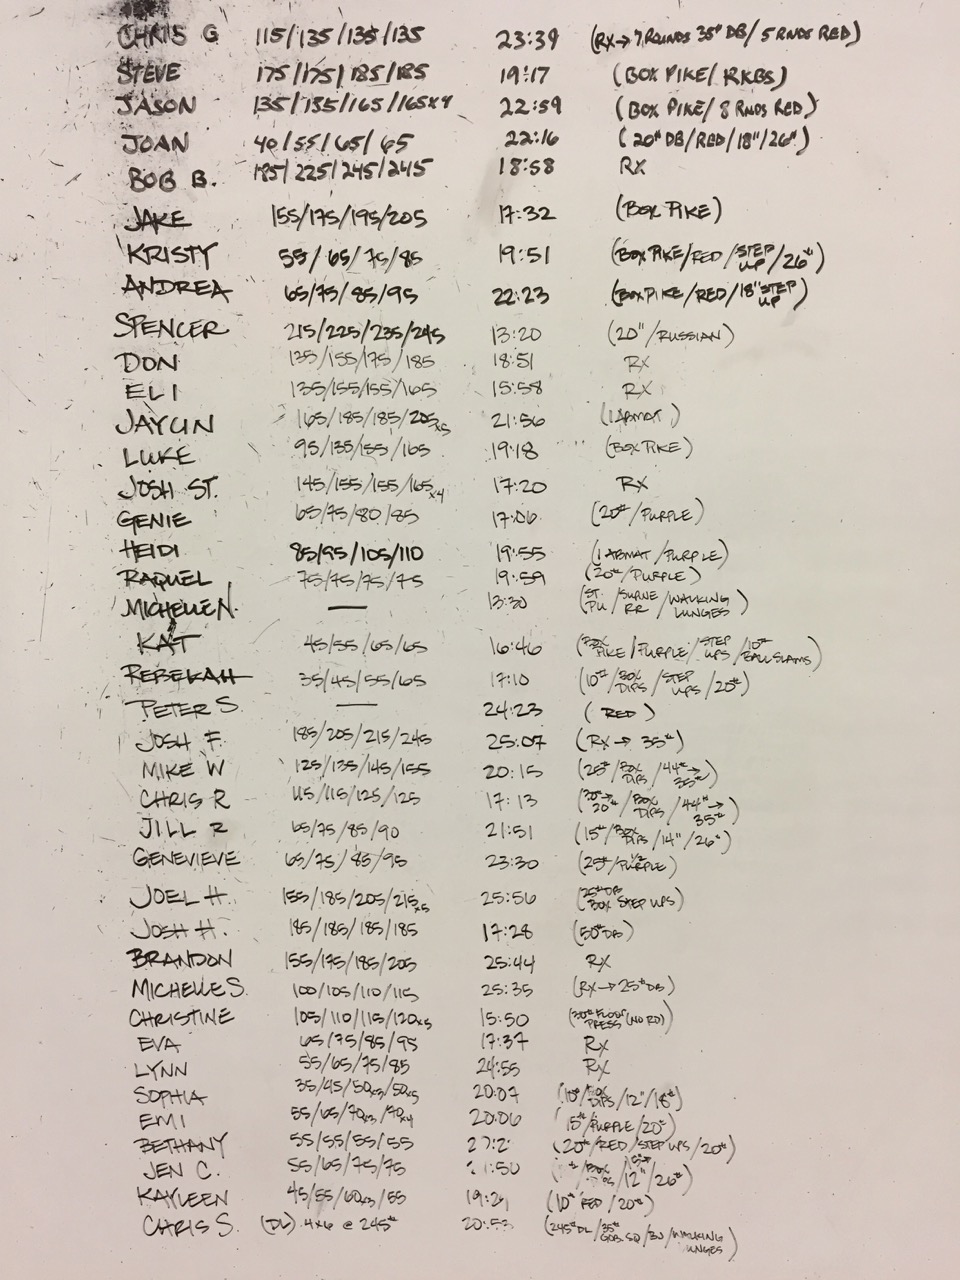 CHRIS G 115/135/135/135 23:39 (RX→7 ROUNDS 35# DB/5 RNDS RED)
STEVE 175/175/185/185 19:17 (BOX PIKE/RKBS)
JASON 135/155/165/165x4 22:59 (BOX PIKE/8 RNDS RED)
JOAN 40/55/65/65 22:16 (20# DB/RED/18"/26#)
BOB B. 185/225/245/245 18:58 RX
JAKE 155/175/195/205 17:32 (BOX PIKE)
KRISTY 55/65/75/85 19:51 (BOX PIKE/RED/STEP UP/26#)
ANDREA 65/75/85/95 22:23 (BOX PIKE/RED/18" STEP UP)
SPENCER 215/225/235/245 13:20 (20"/RUSSIAN)
DON 135/155/175/185 18:51 RX
ELI 135/155/155/165 15:58 RX
JAYLIN 165/185/185/205x5 21:56 (1 ABMAT)
LUKE 95/135/155/165 19:18 (BOX PIKE)
JOSH ST. 145/155/155/165x4 17:20 RX
GENIE 65/75/80/85 17:06 (20#/PURPLE)
HEIDI 85/95/105/110 19:55 (1 ABMAT/PURPLE)
RAQUEL 75/75/75/75 19:59 (20#/PURPLE)
MICHELLE N. — 13:30 (ST. PU/ RR/WALKING LUNGES)
KAT 45/55/65/65 16:46 (BOX PIKE/PURPLE/STEP UPS/10# BALL SLAMS)
REBEKAH 35/45/55/65 17:10 (10#/BOX DIPS/STEP UPS/20#)
PETER S. — 24:23 (RED)
JOSH F. 185/205/215/245 25:07 (RX→35#)
MIKE W 125/135/145/155 20:15 (25#/BOX DIPS/44#→35#)
CHRIS R 115/115/125/125 17:13 (→20#/BOX DIPS/44#→35#)
JILL R 65/75/85/90 21:51 (15#/BOX DIPS/14"/26#)
GENEVIEVE 65/75/85/95 23:30 (25#/PURPLE)
JOEL H. 155/185/205/215x5 25:56 (25# DB BOX STEP UPS)
JOSH H. 185/185/185/185 17:28 (50# DB)
BRANDON 155/175/185/205 25:44 RX
MICHELLE S. 100/105/110/115 25:35 (RX→25# DB)
CHRISTINE 105/110/115/120x5 15:50 (30# FLOOR PRESS (NO RD)
EVA 65/75/85/95 17:37 RX
LYNN 55/65/75/85 24:55 RX
SOPHIA 35/45/50x3/50x5 20:07 (10#/BOX DIPS/12"/18#)
EMI 55/65/70x3/70x4 20:06 (15#/PURPLE/20#)
BETHANY 55/55/55/55 (20#/RED/STEP UPS/20#)
JEN C. 55/65/75/75 /12"/26#)
KAYLEEN 45/55/60x3/55 (10# RED/20#)
CHRIS S. (DL) 4x6 @ 245# 20:53 (245# DL/35# GOB. SQ/BJ/WALKING LUNGES)